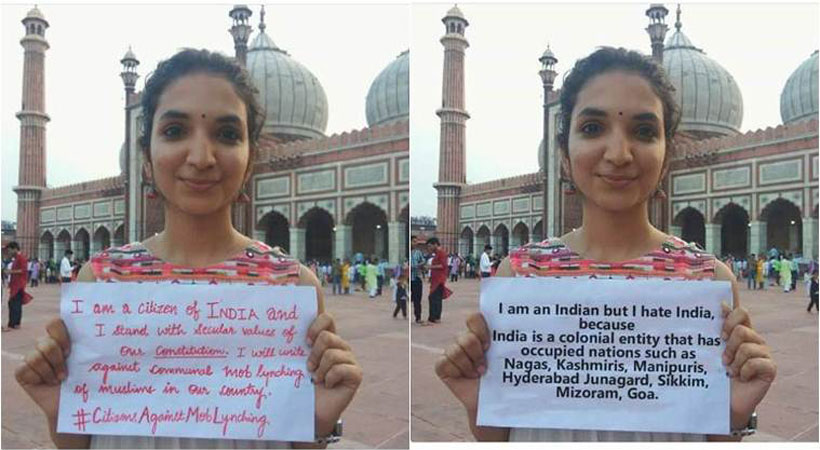 I am a citizen of INDIA and
I stand with secular values of
our Constitution. I will write
against communal mob lynching
of muslims in our country.
#CitizensAgainstMobLynching.
I am an Indian but I hate India,
because
India is a colonial entity that has
occupied nations such as
Nagas, Kashmiris, Manipuris,
Hyderabad Junagard, Sikkim,
Mizoram, Goa.